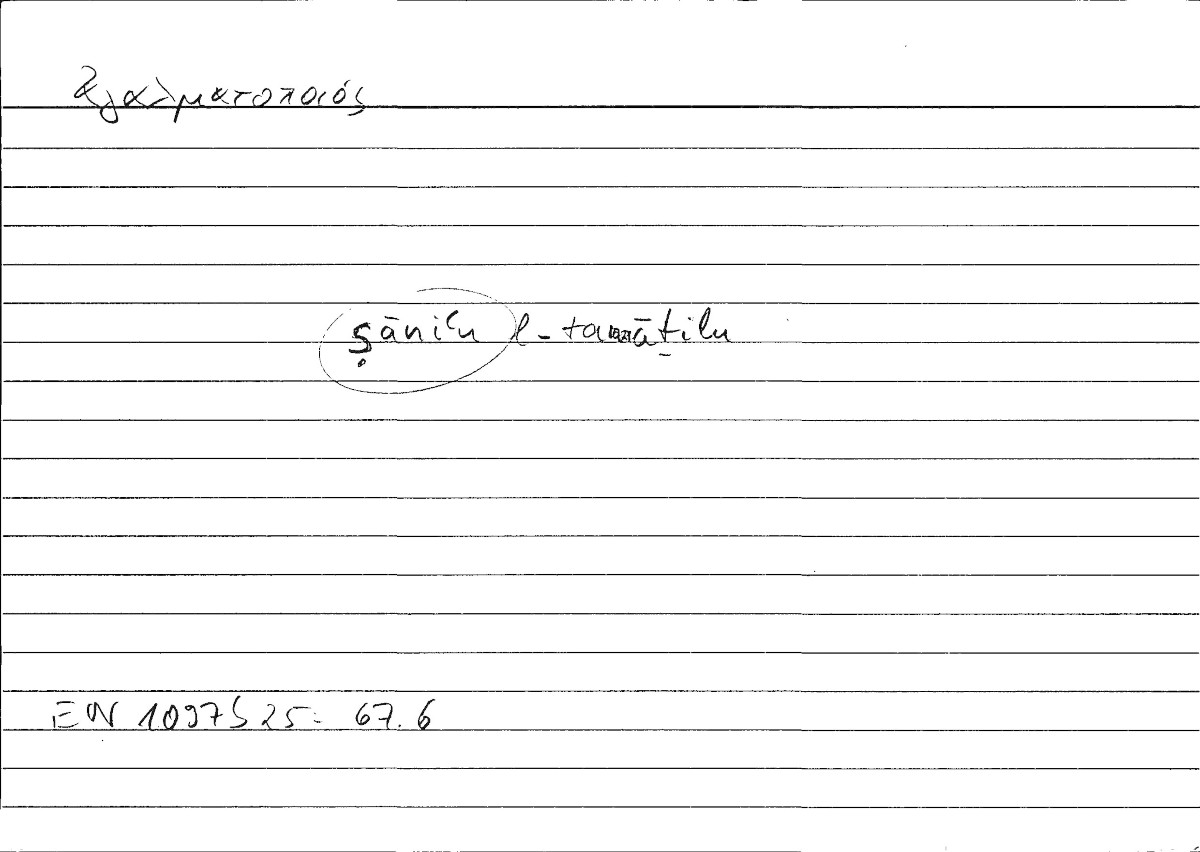 ἀγαλματοποιός
ṣāniʿu l-tamāṯilu
EN 1097b25: 67.6